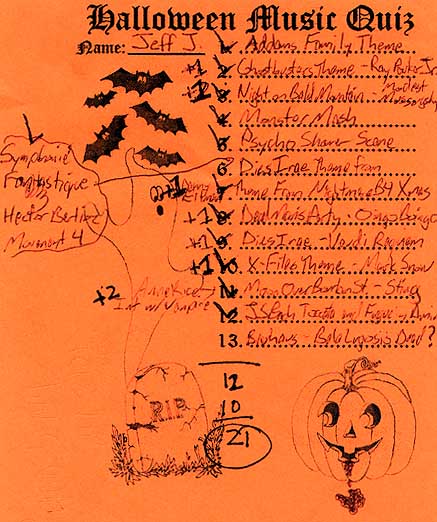 Halloween Music Quiz
Name: Jeff J.
1. Addams Family Theme
+1 2. Ghostbusters Theme - Ray Parker Jr
+2 3. Night on Bald Mountain - Modest
4. Monster Mash
5. Psycho Shower Scene
6. Dies Irae Theme from
Symphonie
Fantastique
Hector Berlioz
Movement 4
+1 Danny Elfman
7. Theme From Nightmare B4 Xmas
+1 8. Dead Mans Party - Oingo Boingo
+1 9. Dies Irae - Verdi Requiem
+1 10. X-Files Theme - Mark Snow
+2 Anne Rice
Int w/ Vampire
11. Moon Over Bourbon St - Sting
12. JS Bach Toccata and Fugue in Dmin
13. Bauhaus - Bela Lugosis Dead?
12
10
21
R.I.P.